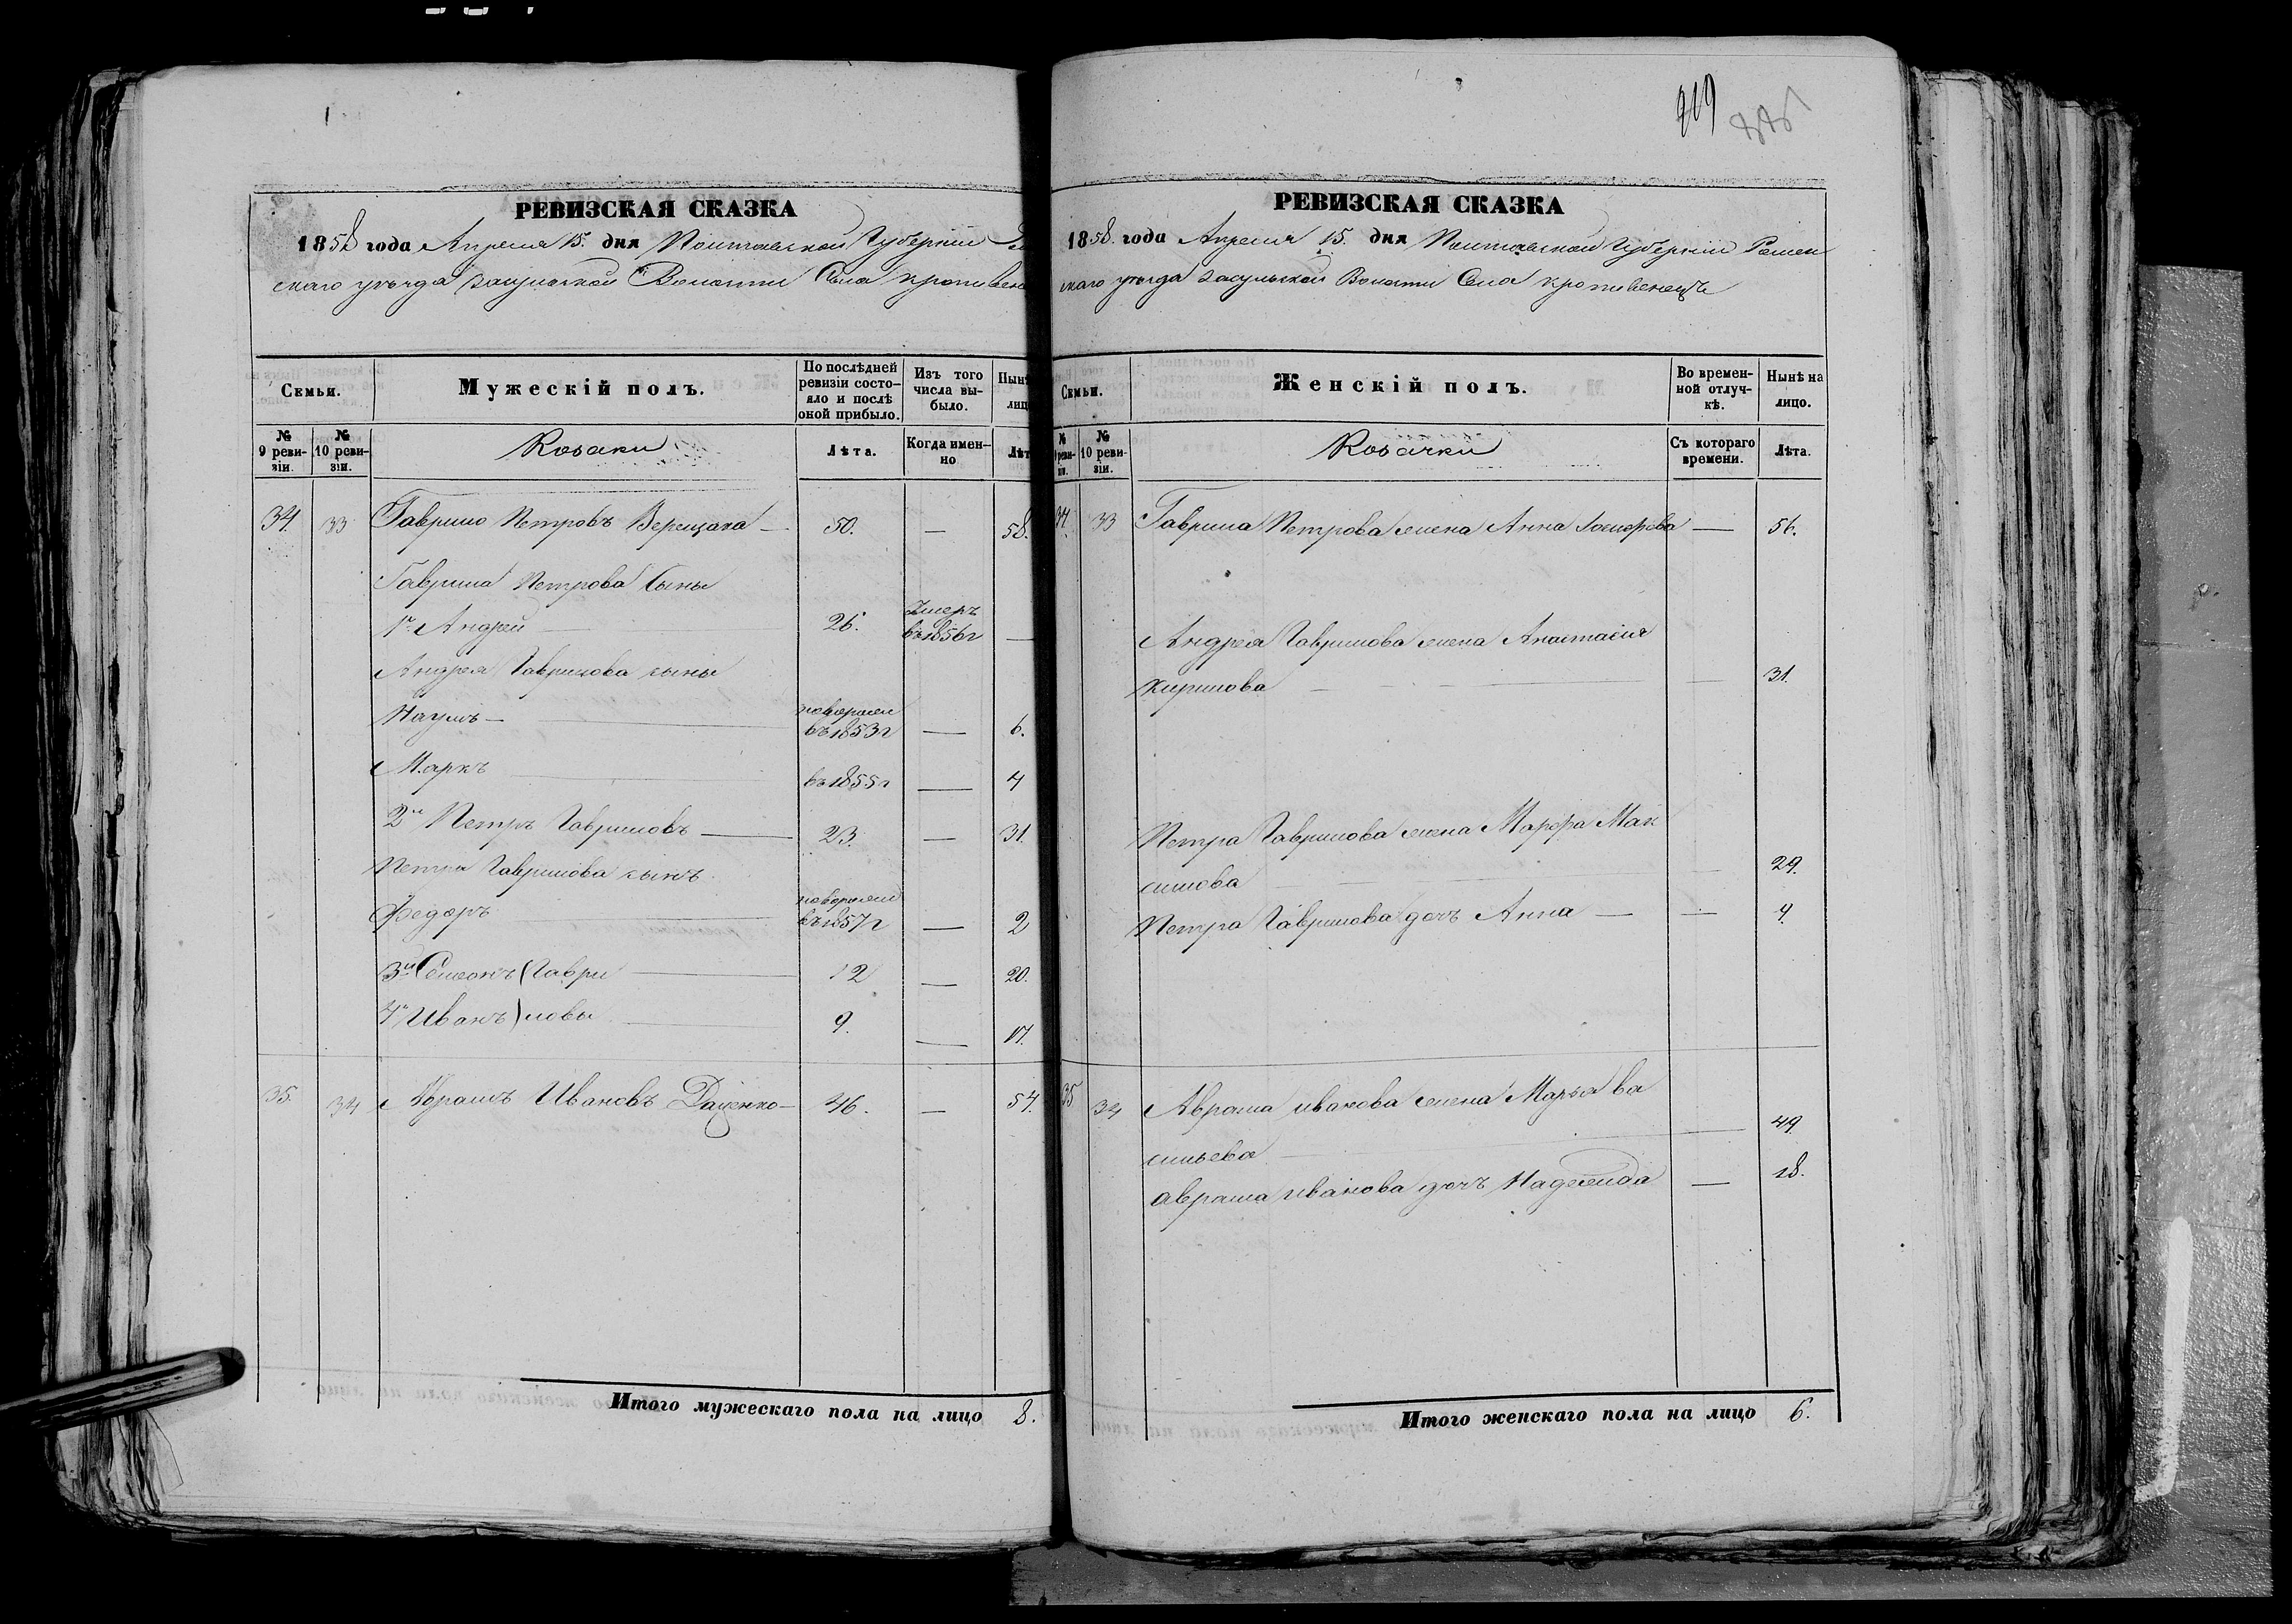 РЕВИЗСКАЯ СКАЗКА
1858 года Апреля 15. дня Полтавской Губерніи
скаго уѣзда Засульской Волости Села Кропивен
Семьи.
Мужескій полъ.
По послѣдней ревизіи состояло и послѣ оной прибыло.
Изъ того числа выбыло.
Нынѣ
лиц
№ 9 ревизіи.
№ 10 ревизіи.
Козаки
Лѣта.
Когда именно
Лѣт
34. 33 Гаврило Петровъ Верещака — 50. — 58.
Гаврила Петрова Сыны
1й Андрей — 26. Умеръ въ 1856г —
Андрея Гаврилова сыны
Наумъ — новорожен въ 1853г — 6.
Маркъ — въ 1855г — 4
2й Петръ Гавриловъ — 23. — 31.
Петра Гаврилова сынъ
Федоръ — новорожен въ 1857г — 2
3й Семенъ (Гаври — 12 — 20.
4й Иванъ) ловы — 9. — 17.
35. 34 Абрамъ Ивановъ Даценко — 46. — 54.
Итого мужескаго пола на лицо 8.
219
РЕВИЗСКАЯ СКАЗКА
1858. года Апреля 15. дня Полтавской Губерніи Ромен
скаго уѣзда Засульской Волости Села Кропивенецъ
Семьи.
Женскій полъ.
Во временной отлучкѣ.
Нынѣ на лицо.
№ реви
№ 10 ревизіи.
Козачки
Съ котораго времени.
Лѣта.
34. 33 Гаврила Петрова жена Анна — 56.
Андрея Гаврилова жена Анастасия
Кирилова — — 31.
Петра Гаврилова жена Марфа Мак
симова — — 29.
Петра Гаврилова дочъ Анна — — 4.
35 34 Абрама иванова жена Марья ва
сильева — — 49.
абрама иванова дочъ Надежда — 18.
Итого женскаго пола на лицо 6.